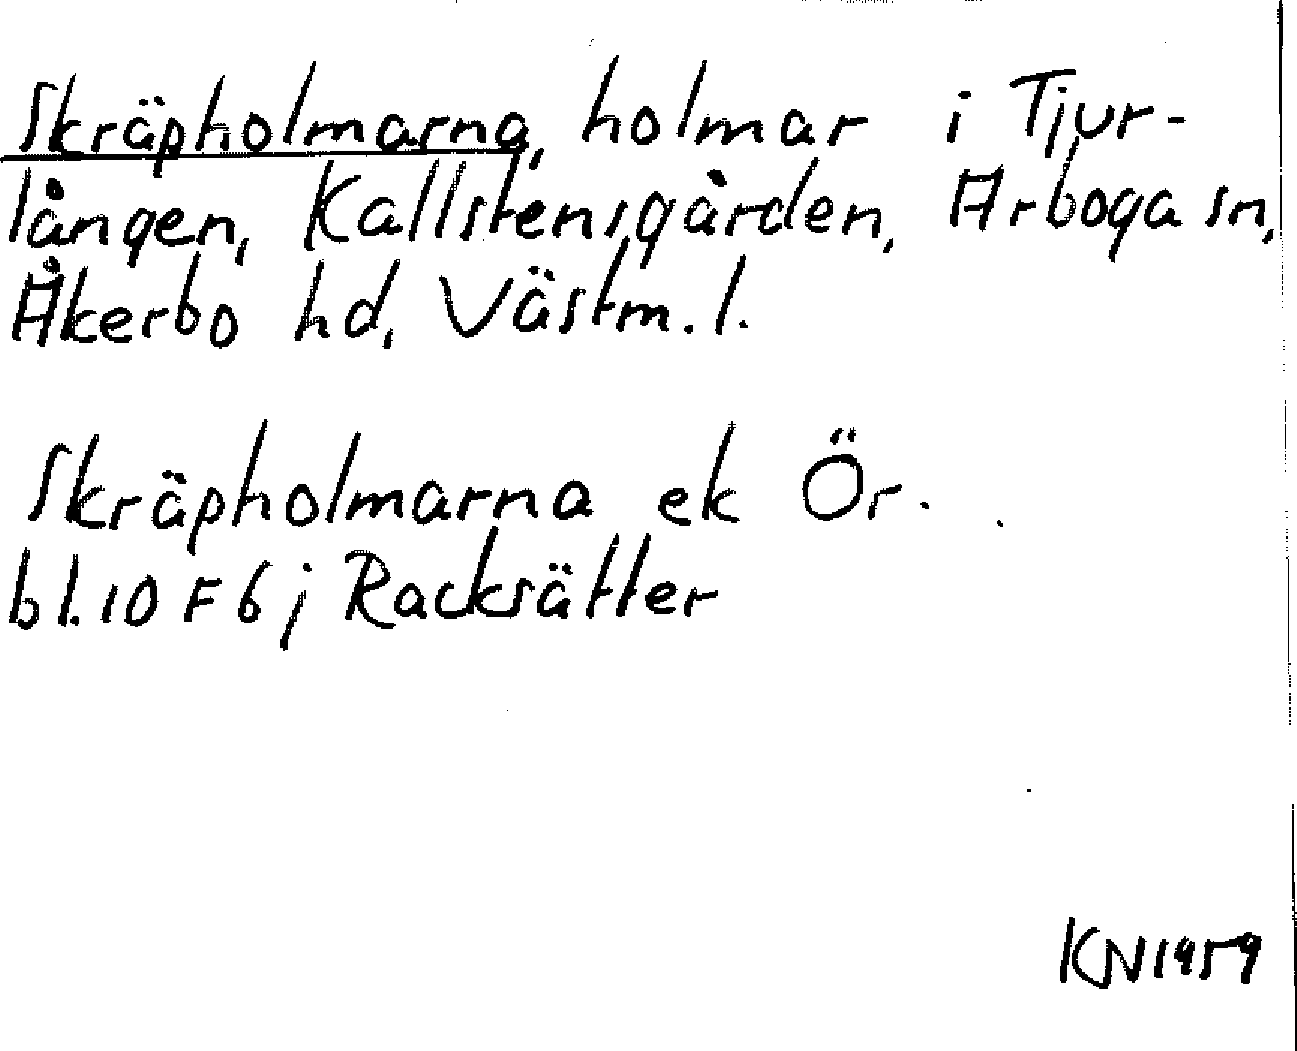 Skräpholmarna, holmar i Tjur-
lången, Kallstensgården, Arboga sn,
Åkerbo hd, Västm. l.
Skräpholmarna ek Ör.
bl. 10 F 6 j Racksätter
KN 1959